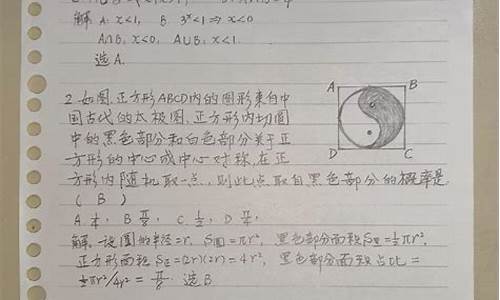 解 A: x<1, B. 3ˣ<1 ⇒ x<0
A∩B: x<0, A∪B: x<1.
选 A.
2. 如图,正方形ABCD内的图形来自中
国古代的太极图.正方形内切圆
中的黑色部分和白色部分关于正
方形的中心成中心对称.在正
方形内随机取一点,则此点取自黑色部分的概率是
( B )
A. ¼, B π/8, C. ½, D π/4,
解.设圆的半径=r, S圆=πr², 黑色部分面积S黑=½πr²,
正方形面积S正=(2r)(2r)=4r², 黑色部分面积占比=
½πr²/4r² = π/8. 选B
A
B
D
C